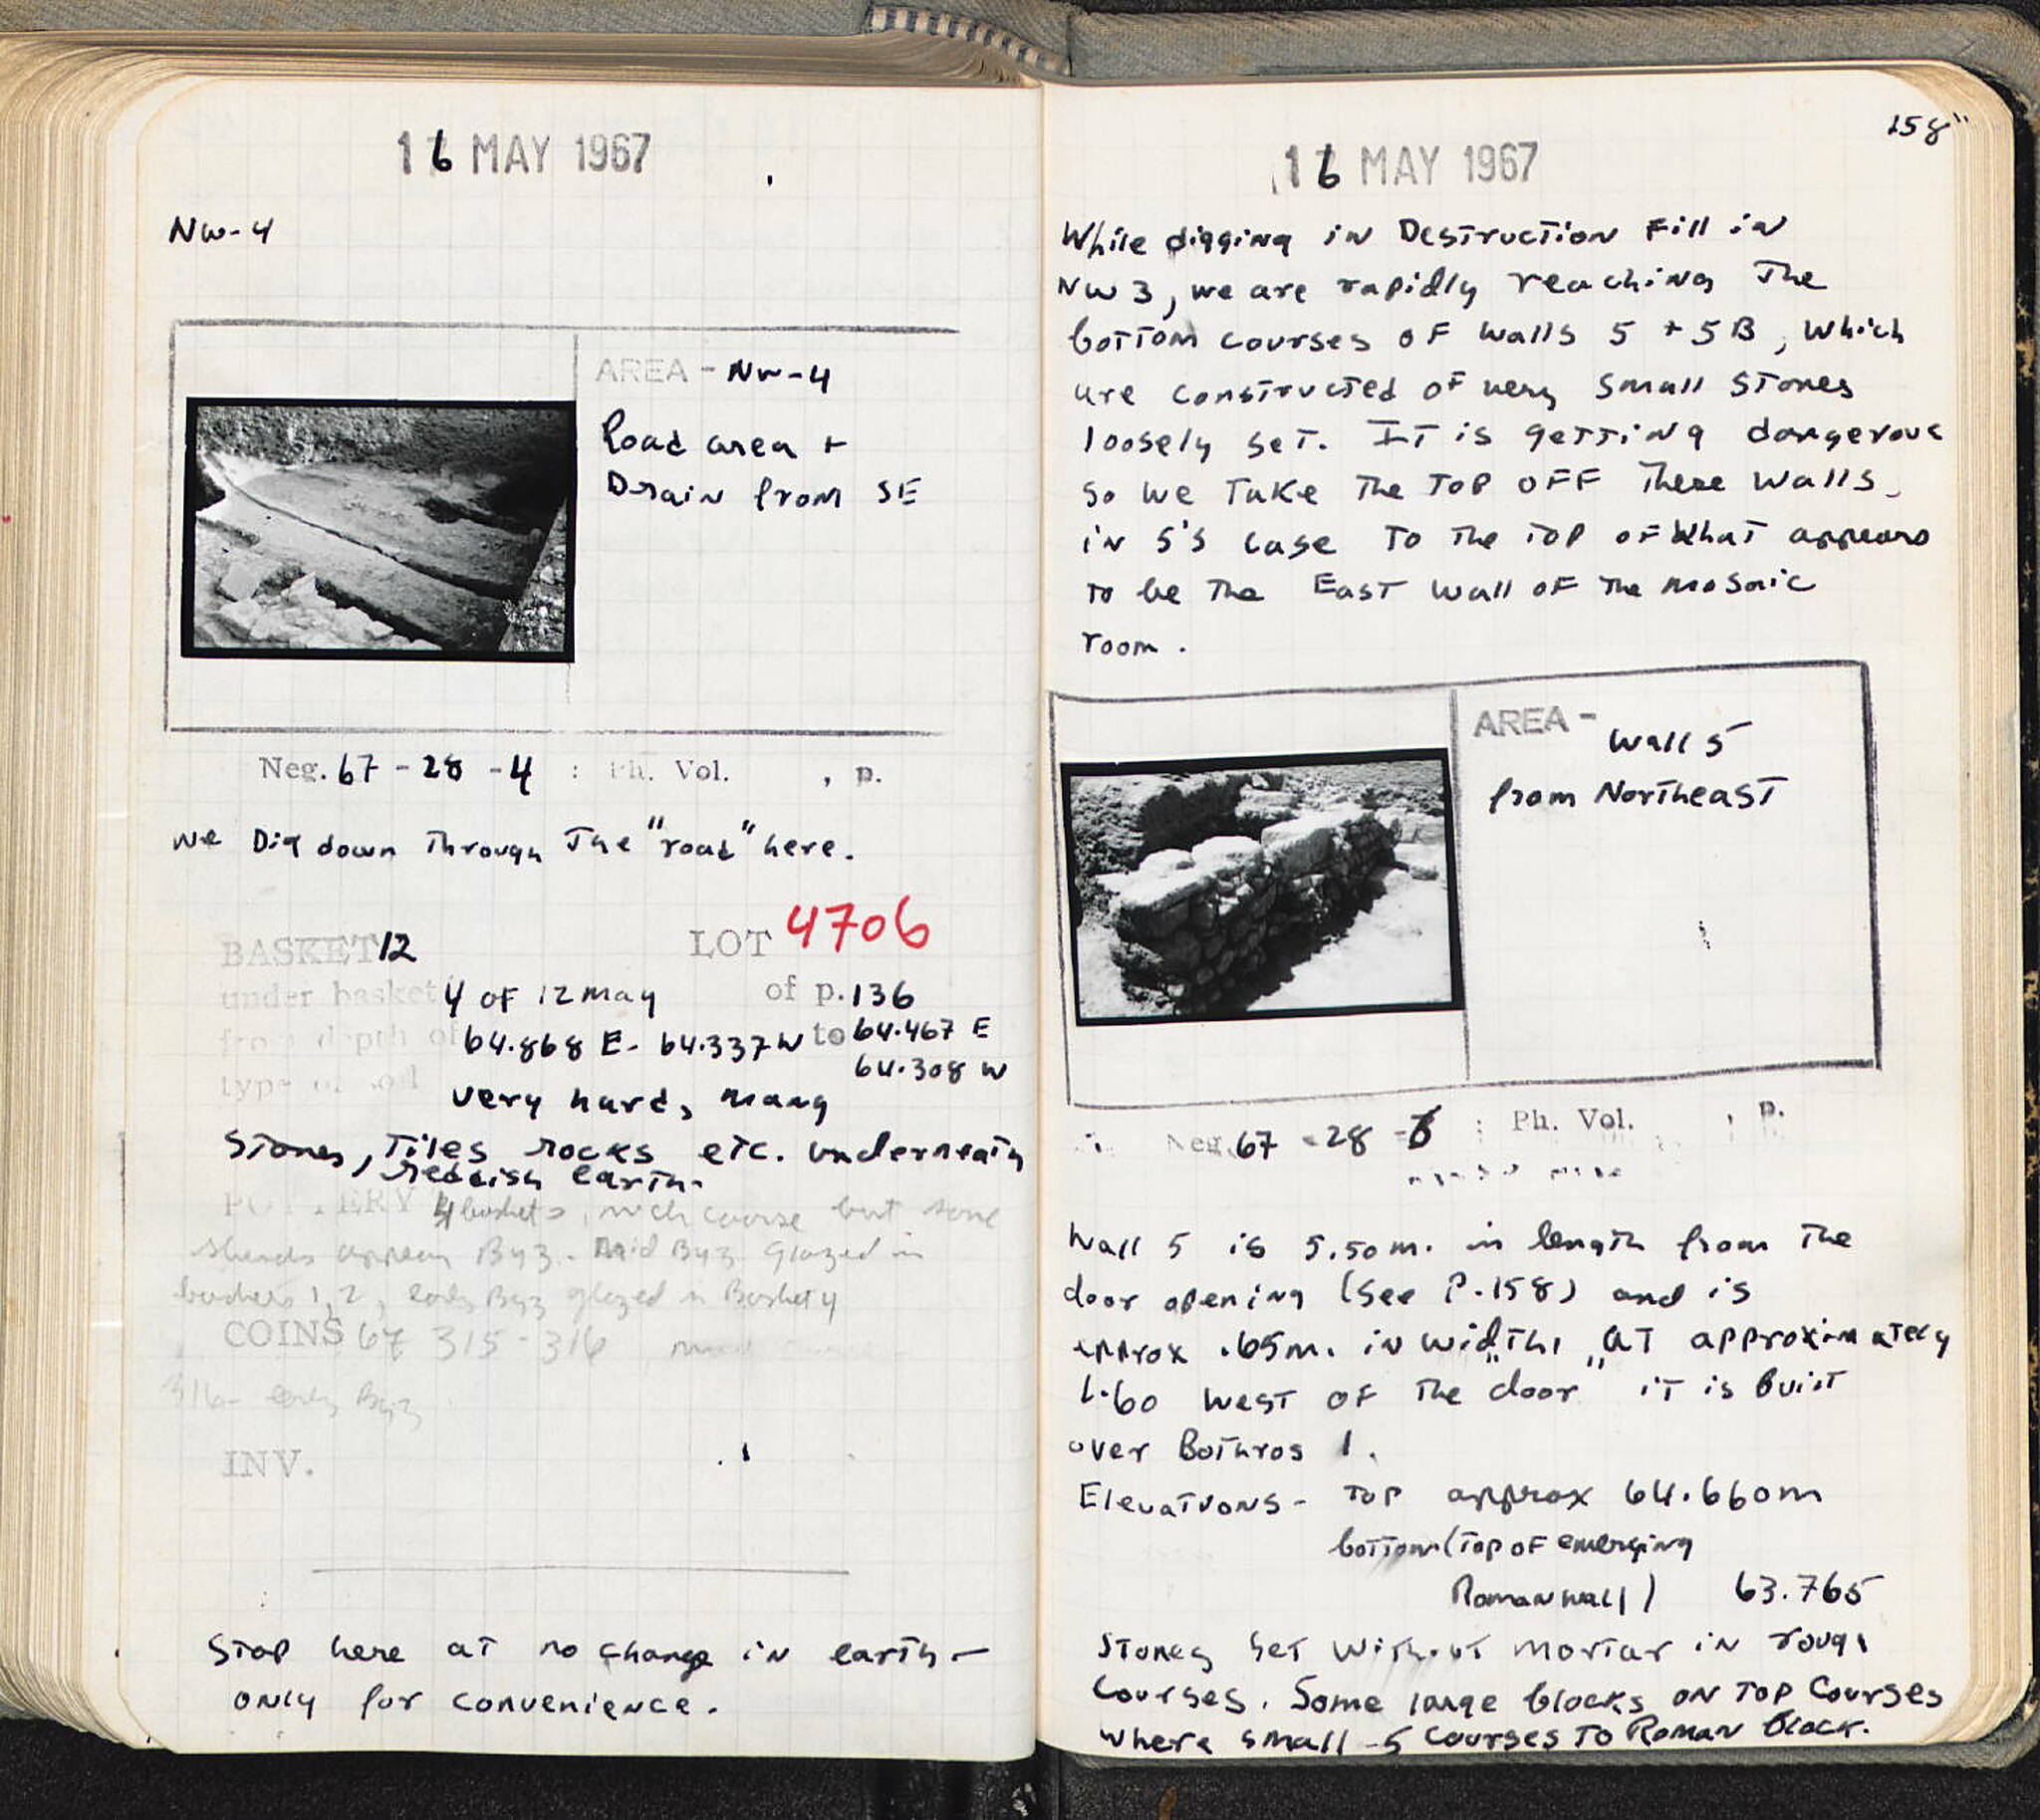 16 MAY 1967
NW-4
AREA - NW-4
Road area +
Drain from SE
Neg. 67 - 28 - 4 : Ph. Vol. , p.
We Dig down Through The "road" here.
BASKET 12 LOT 4706
under basket 4 OF 12 May of p. 136
from depth of 64.868 E - 64.337 W to 64.467 E
64.308 W
type of soil
very hard, many
Stones, Tiles rocks etc. underneath
reddish earth.
POTTERY 4 baskets, much coarse but some
sherds appear Byz. Mid Byz glazed in
baskets 1, 2, early Byz glazed in Basket 4
COINS 67 315-316
316- early Byz
INV.
Stop here at no change in earth -
only for convenience.
158"
16 MAY 1967
While digging in Destruction Fill in
NW 3, we are rapidly reaching The
bottom courses OF Walls 5 + 5B, Which
are constructed OF very Small Stones
loosely set. IT is getting dangerous
so we Take The Top OFF These Walls,
in 5's case To The Top of What appears
to be The East Wall OF The Mosaic
room.
AREA - Wall 5
from Northeast
Neg. 67 - 28 - 6 : Ph. Vol. , p.
Wall 5 is 5.50 m. in length from The
door opening (See P. 158) and is
approx .65m. in width, AT approximately
1.60 West OF The "door" iT is built
over Bothros 1.
Elevations - Top approx 64.660m
bottom (Top OF emerging
Roman Wall) 63.765
Stones Set Without Mortar in rough
Courses. Some large blocks on Top Courses
where small - 5 Courses To Roman block.